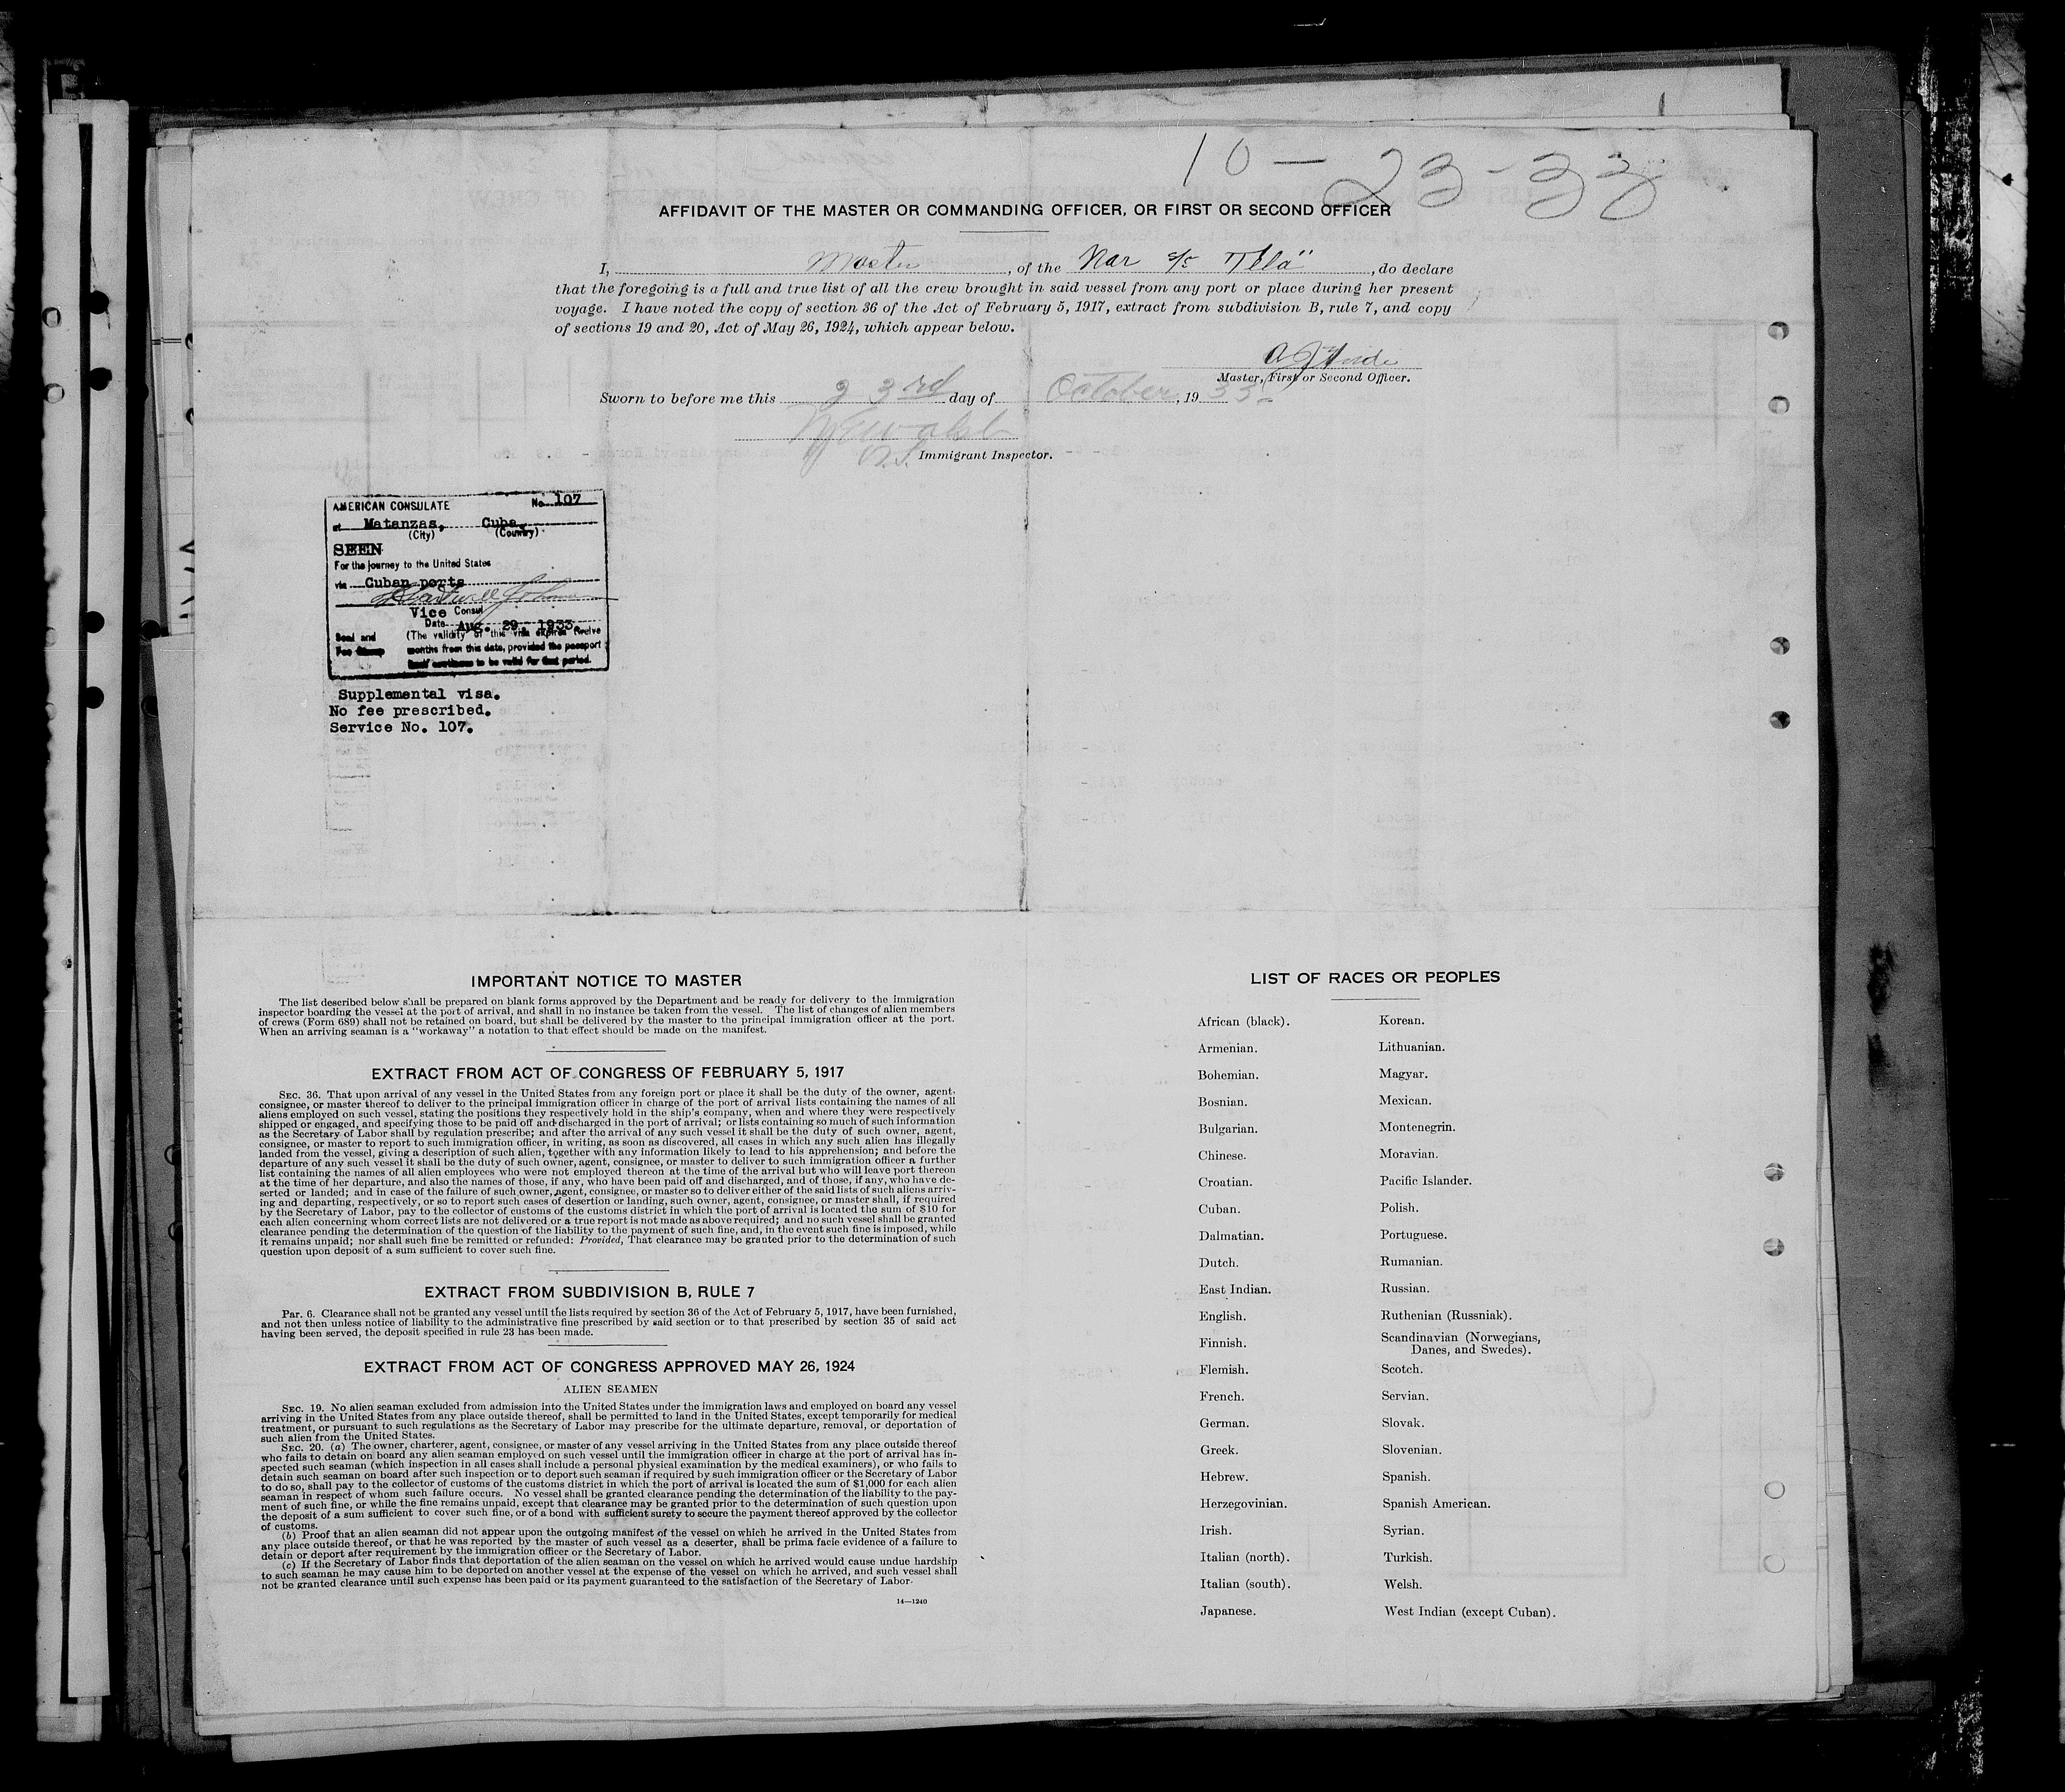 10-23-33
AFFIDAVIT OF THE MASTER OR COMMANDING OFFICER, OR FIRST OR SECOND OFFICER
I, Master, of the Nor s/s "Tela", do declare
that the foregoing is a full and true list of all the crew brought in said vessel from any port or place during her present
voyage. I have noted the copy of section 36 of the Act of February 5, 1917, extract from subdivision B, rule 7, and copy
of sections 19 and 20, Act of May 26, 1924, which appear below.
Master, First or Second Officer.
Sworn to before me this 23rd day of October, 1933
Immigrant Inspector.
AMERICAN CONSULATE No. 107
at Matanzas, Cuba.
(City) (Country)
SEEN
For the journey to the United States
via Cuban ports
Vice Consul
Date Aug. 29, 1933.
Seal and (The validity of this visa expires twelve
Fee Stamp months from this date, provided the passport
itself continues to be valid for that period.
Supplemental visa.
No fee prescribed.
Service No. 107.
IMPORTANT NOTICE TO MASTER
The list described below shall be prepared on blank forms approved by the Department and be ready for delivery to the immigration
inspector boarding the vessel at the port of arrival, and shall in no instance be taken from the vessel. The list of changes of alien members
of crews (Form 689) shall not be retained on board, but shall be delivered by the master to the principal immigration officer at the port.
When an arriving seaman is a "workaway" a notation to that effect should be made on the manifest.
EXTRACT FROM ACT OF CONGRESS OF FEBRUARY 5, 1917
SEC. 36. That upon arrival of any vessel in the United States from any foreign port or place it shall be the duty of the owner, agent,
consignee, or master thereof to deliver to the principal immigration officer in charge of the port of arrival lists containing the names of all
aliens employed on such vessel, stating the positions they respectively hold in the ship's company, when and where they were respectively
shipped or engaged, and specifying those to be paid off and discharged in the port of arrival; or lists containing so much of such information
as the Secretary of Labor shall by regulation prescribe; and after the arrival of any such vessel it shall be the duty of such owner, agent,
consignee, or master to report to such immigration officer, in writing, as soon as discovered, all cases in which any such alien has illegally
landed from the vessel, giving a description of such alien, together with any information likely to lead to his apprehension; and before the
departure of any such vessel it shall be the duty of such owner, agent, consignee, or master to deliver to such immigration officer a further
list containing the names of all alien employees who were not employed thereon at the time of the arrival but who will leave port thereon
at the time of her departure, and also the names of those, if any, who have been paid off and discharged, and of those, if any, who have de-
serted or landed; and in case of the failure of such owner, agent, consignee, or master so to deliver either of the said lists of such aliens arriv-
ing and departing, respectively, or so to report such cases of desertion or landing, such owner, agent, consignee, or master shall, if required
by the Secretary of Labor, pay to the collector of customs of the customs district in which the port of arrival is located the sum of $10 for
each alien concerning whom correct lists are not delivered or a true report is not made as above required; and no such vessel shall be granted
clearance pending the determination of the question of the liability to the payment of such fine, and, in the event such fine is imposed, while
it remains unpaid; nor shall such fine be remitted or refunded: Provided, That clearance may be granted prior to the determination of such
question upon deposit of a sum sufficient to cover such fine.
EXTRACT FROM SUBDIVISION B, RULE 7
Par. 6. Clearance shall not be granted any vessel until the lists required by section 36 of the Act of February 5, 1917, have been furnished,
and not then unless notice of liability to the administrative fine prescribed by said section or to that prescribed by section 35 of said act
having been served, the deposit specified in rule 23 has been made.
EXTRACT FROM ACT OF CONGRESS APPROVED MAY 26, 1924
ALIEN SEAMEN
SEC. 19. No alien seaman excluded from admission into the United States under the immigration laws and employed on board any vessel
arriving in the United States from any place outside thereof, shall be permitted to land in the United States, except temporarily for medical
treatment, or pursuant to such regulations as the Secretary of Labor may prescribe for the ultimate departure, removal, or deportation of
such alien from the United States.
SEC. 20. (a) The owner, charterer, agent, consignee, or master of any vessel arriving in the United States from any place outside thereof
who fails to detain on board any alien seaman employed on such vessel until the immigration officer in charge at the port of arrival has in-
spected such seaman (which inspection in all cases shall include a personal physical examination by the medical examiners), or who fails to
detain such seaman on board after such inspection or to deport such seaman if required by such immigration officer or the Secretary of Labor
to do so, shall pay to the collector of customs of the customs district in which the port of arrival is located the sum of $1,000 for each alien
seaman in respect of whom such failure occurs. No vessel shall be granted clearance pending the determination of the liability to the pay-
ment of such fine, or while the fine remains unpaid, except that clearance may be granted prior to the determination of such question upon
the deposit of a sum sufficient to cover such fine, or of a bond with sufficient surety to secure the payment thereof approved by the collector
of customs.
(b) Proof that an alien seaman did not appear upon the outgoing manifest of the vessel on which he arrived in the United States from
any place outside thereof, or that he was reported by the master of such vessel as a deserter, shall be prima facie evidence of a failure to
detain or deport after requirement by the immigration officer or the Secretary of Labor.
(c) If the Secretary of Labor finds that deportation of the alien seaman on the vessel on which he arrived would cause undue hardship
to such seaman he may cause him to be deported on another vessel at the expense of the vessel on which he arrived, and such vessel shall
not be granted clearance until such expense has been paid or its payment guaranteed to the satisfaction of the Secretary of Labor.
14—1240
LIST OF RACES OR PEOPLES
African (black). Korean.
Armenian. Lithuanian.
Bohemian. Magyar.
Bosnian. Mexican.
Bulgarian. Montenegrin.
Chinese. Moravian.
Croatian. Pacific Islander.
Cuban. Polish.
Dalmatian. Portuguese.
Dutch. Rumanian.
East Indian. Russian.
English. Ruthenian (Russniak).
Finnish. Scandinavian (Norwegians,
Danes, and Swedes).
Flemish. Scotch.
French. Servian.
German. Slovak.
Greek. Slovenian.
Hebrew. Spanish.
Herzegovinian. Spanish American.
Irish. Syrian.
Italian (north). Turkish.
Italian (south). Welsh.
Japanese. West Indian (except Cuban).